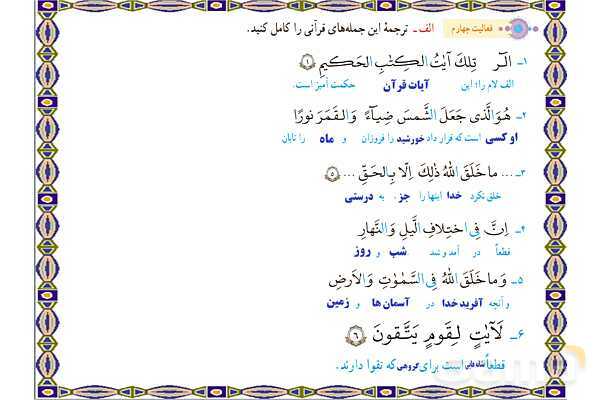 فعالیت چهارم الف ـ ترجمهٔ این جمله‌های قرآنی را کامل کنید.
۱ـ الٓرٰ تِلكَ آياتُ الكِتٰبِ الحَكيمِ ۱
الف لام را؛ این آیات قرآن حکمت آمیز است.
۲ـ هُوَ الَّذى جَعَلَ الشَّمسَ ضِيآءً وَ القَمَرَ نورًا
او کسی است که قرار داد خورشید را فروزان و ماه را تابان
۳ـ ... ما خَلَقَ اللهُ ذٰلِكَ اِلّا بِالحَقِّ ... ۵
خلق نکرد خدا اینها را جز به درستی
۴ـ اِنَّ فِى اختِلافِ الَّيلِ وَ النَّهارِ
قطعاً در آمد و شد شب و روز
۵ـ وَ ما خَلَقَ اللهُ فِى السَّمٰوٰتِ وَ الاَرضِ
و آنچه آفرید خدا در آسمان ها و زمین
۶ـ لَآيٰتٍ لِقَومٍ يَتَّقونَ ۶
قطعاً نشانه‌هایی است برای گروهی که تقوا دارند.